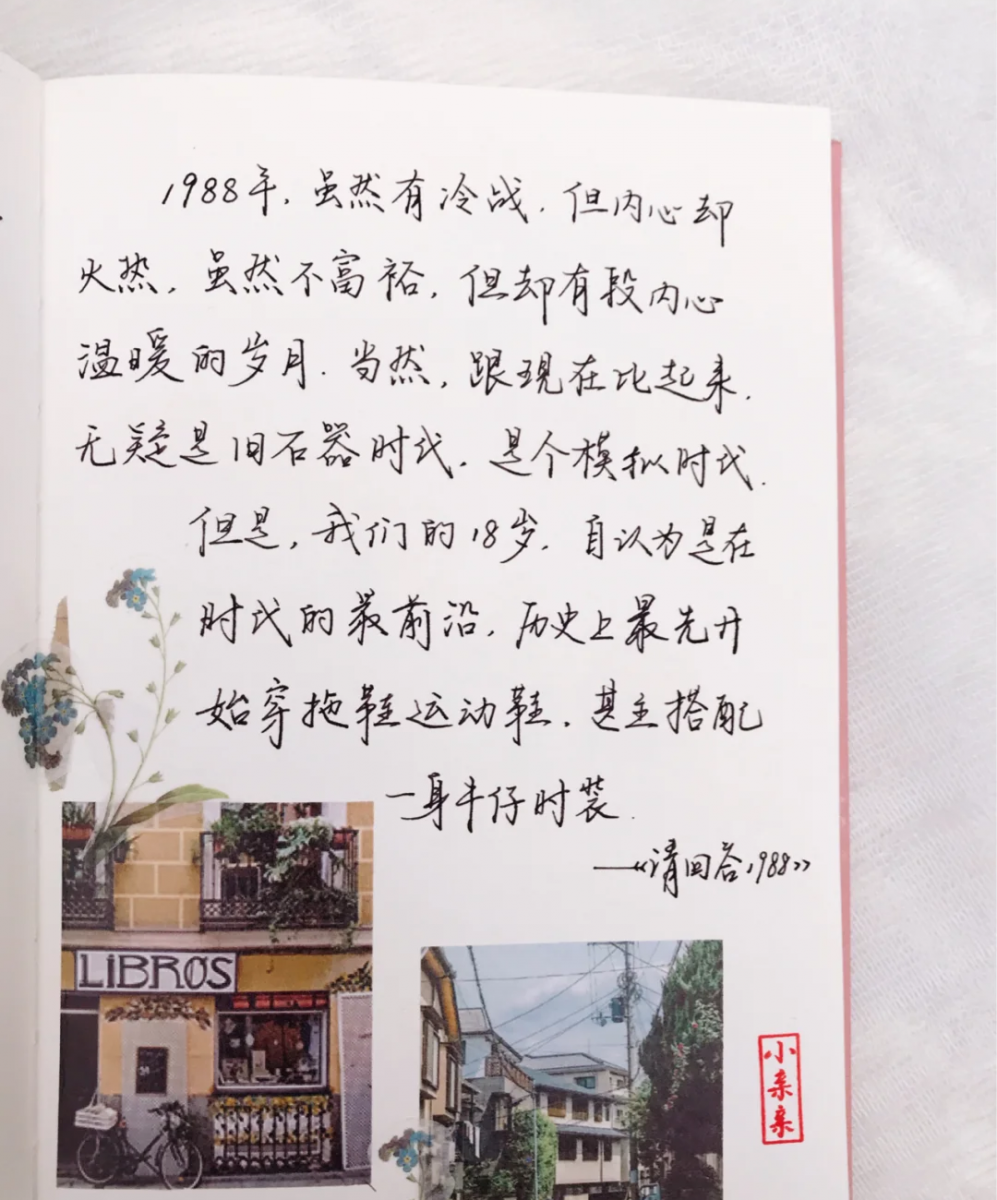 1988年，虽然有冷战，但内心却
火热，虽然不富裕，但却有段内心
温暖的岁月．当然，跟现在比起来，
无疑是旧石器时代，是个模拟时代．
但是，我们的18岁，自认为是在
时代的最前沿，历史上最先开
始穿拖鞋运动鞋，甚至搭配
一身牛仔时装．
——《请回答1988》
LIBROS
小亲亲